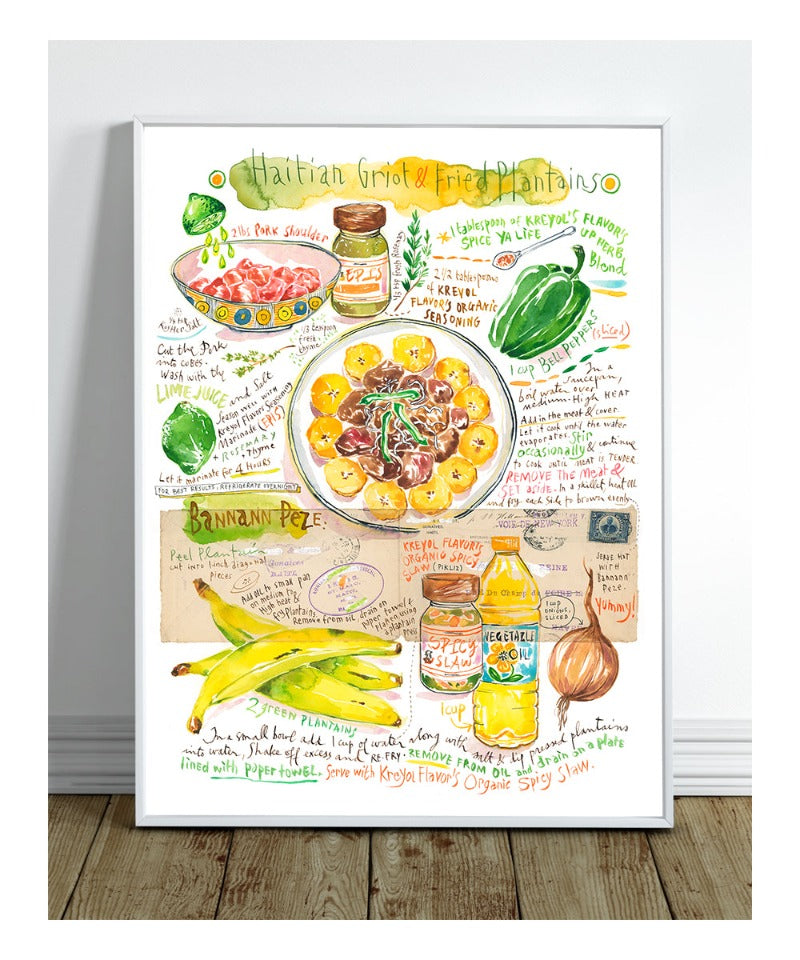 Haitian Griot & Fried Plantains
2lbs PORK Shoulder
EPIS
1/3 cup fresh Rosemary
1 tablespoon of KREYOL'S FLAVOR'S
SPICE YA LIFE UP HERB
Blend
2 1/2 tablespoons
of KREYOL
FLAVOR'S ORGANIC
SEASONING
Kosher Salt
fresh
thyme
1 cup BELL PEPPERS
(sliced)
Cut the Pork
into cubes.
Wash with the
LIME JUICE and Salt
Season well with
Kreyol Flavors Seasoning
Marinade (EPIS)
+ ROSEMARY
+ Thyme
Let it marinate for 4 Hours
FOR BEST RESULTS, REFRIGERATE OVERNIGHT
In a
saucepan,
boil water over
medium-High HEAT
Add in the meat & cover.
Let it cook until the water
evaporates. Stir
occasionally & continue
to cook until meat is TENDER
REMOVE THE MEAT &
SET aside. In a skillet heat oil
and fry each side to brown evenly.
BANNANN PEZE.
Peel Plantain
cut into inch diagonal
pieces
Add oil to small pan
on medium to
High heat &
fry plantains.
Remove from oil drain on
paper towel &
flatten using
a plantain
press
VOIR DE NEW YORK
KREYOL FLAVOR'S
ORGANIC SPICY
SLAW (PIKLIZ)
SPICY
SLAW
VEGETABLE
OIL
1 cup
1 CUP
ONIONS,
SLICED
SERVE HOT
WITH
BANNANN
PEZE.
Yummy!
2 GREEN PLANTAINS
In a small bowl add 1 cup of water along with salt & dip pressed plantains
into water, Shake off excess and RE-FRY. REMOVE FROM OIL and drain on a plate
lined with paper towel. Serve with Kreyol Flavor's Organic Spicy Slaw.